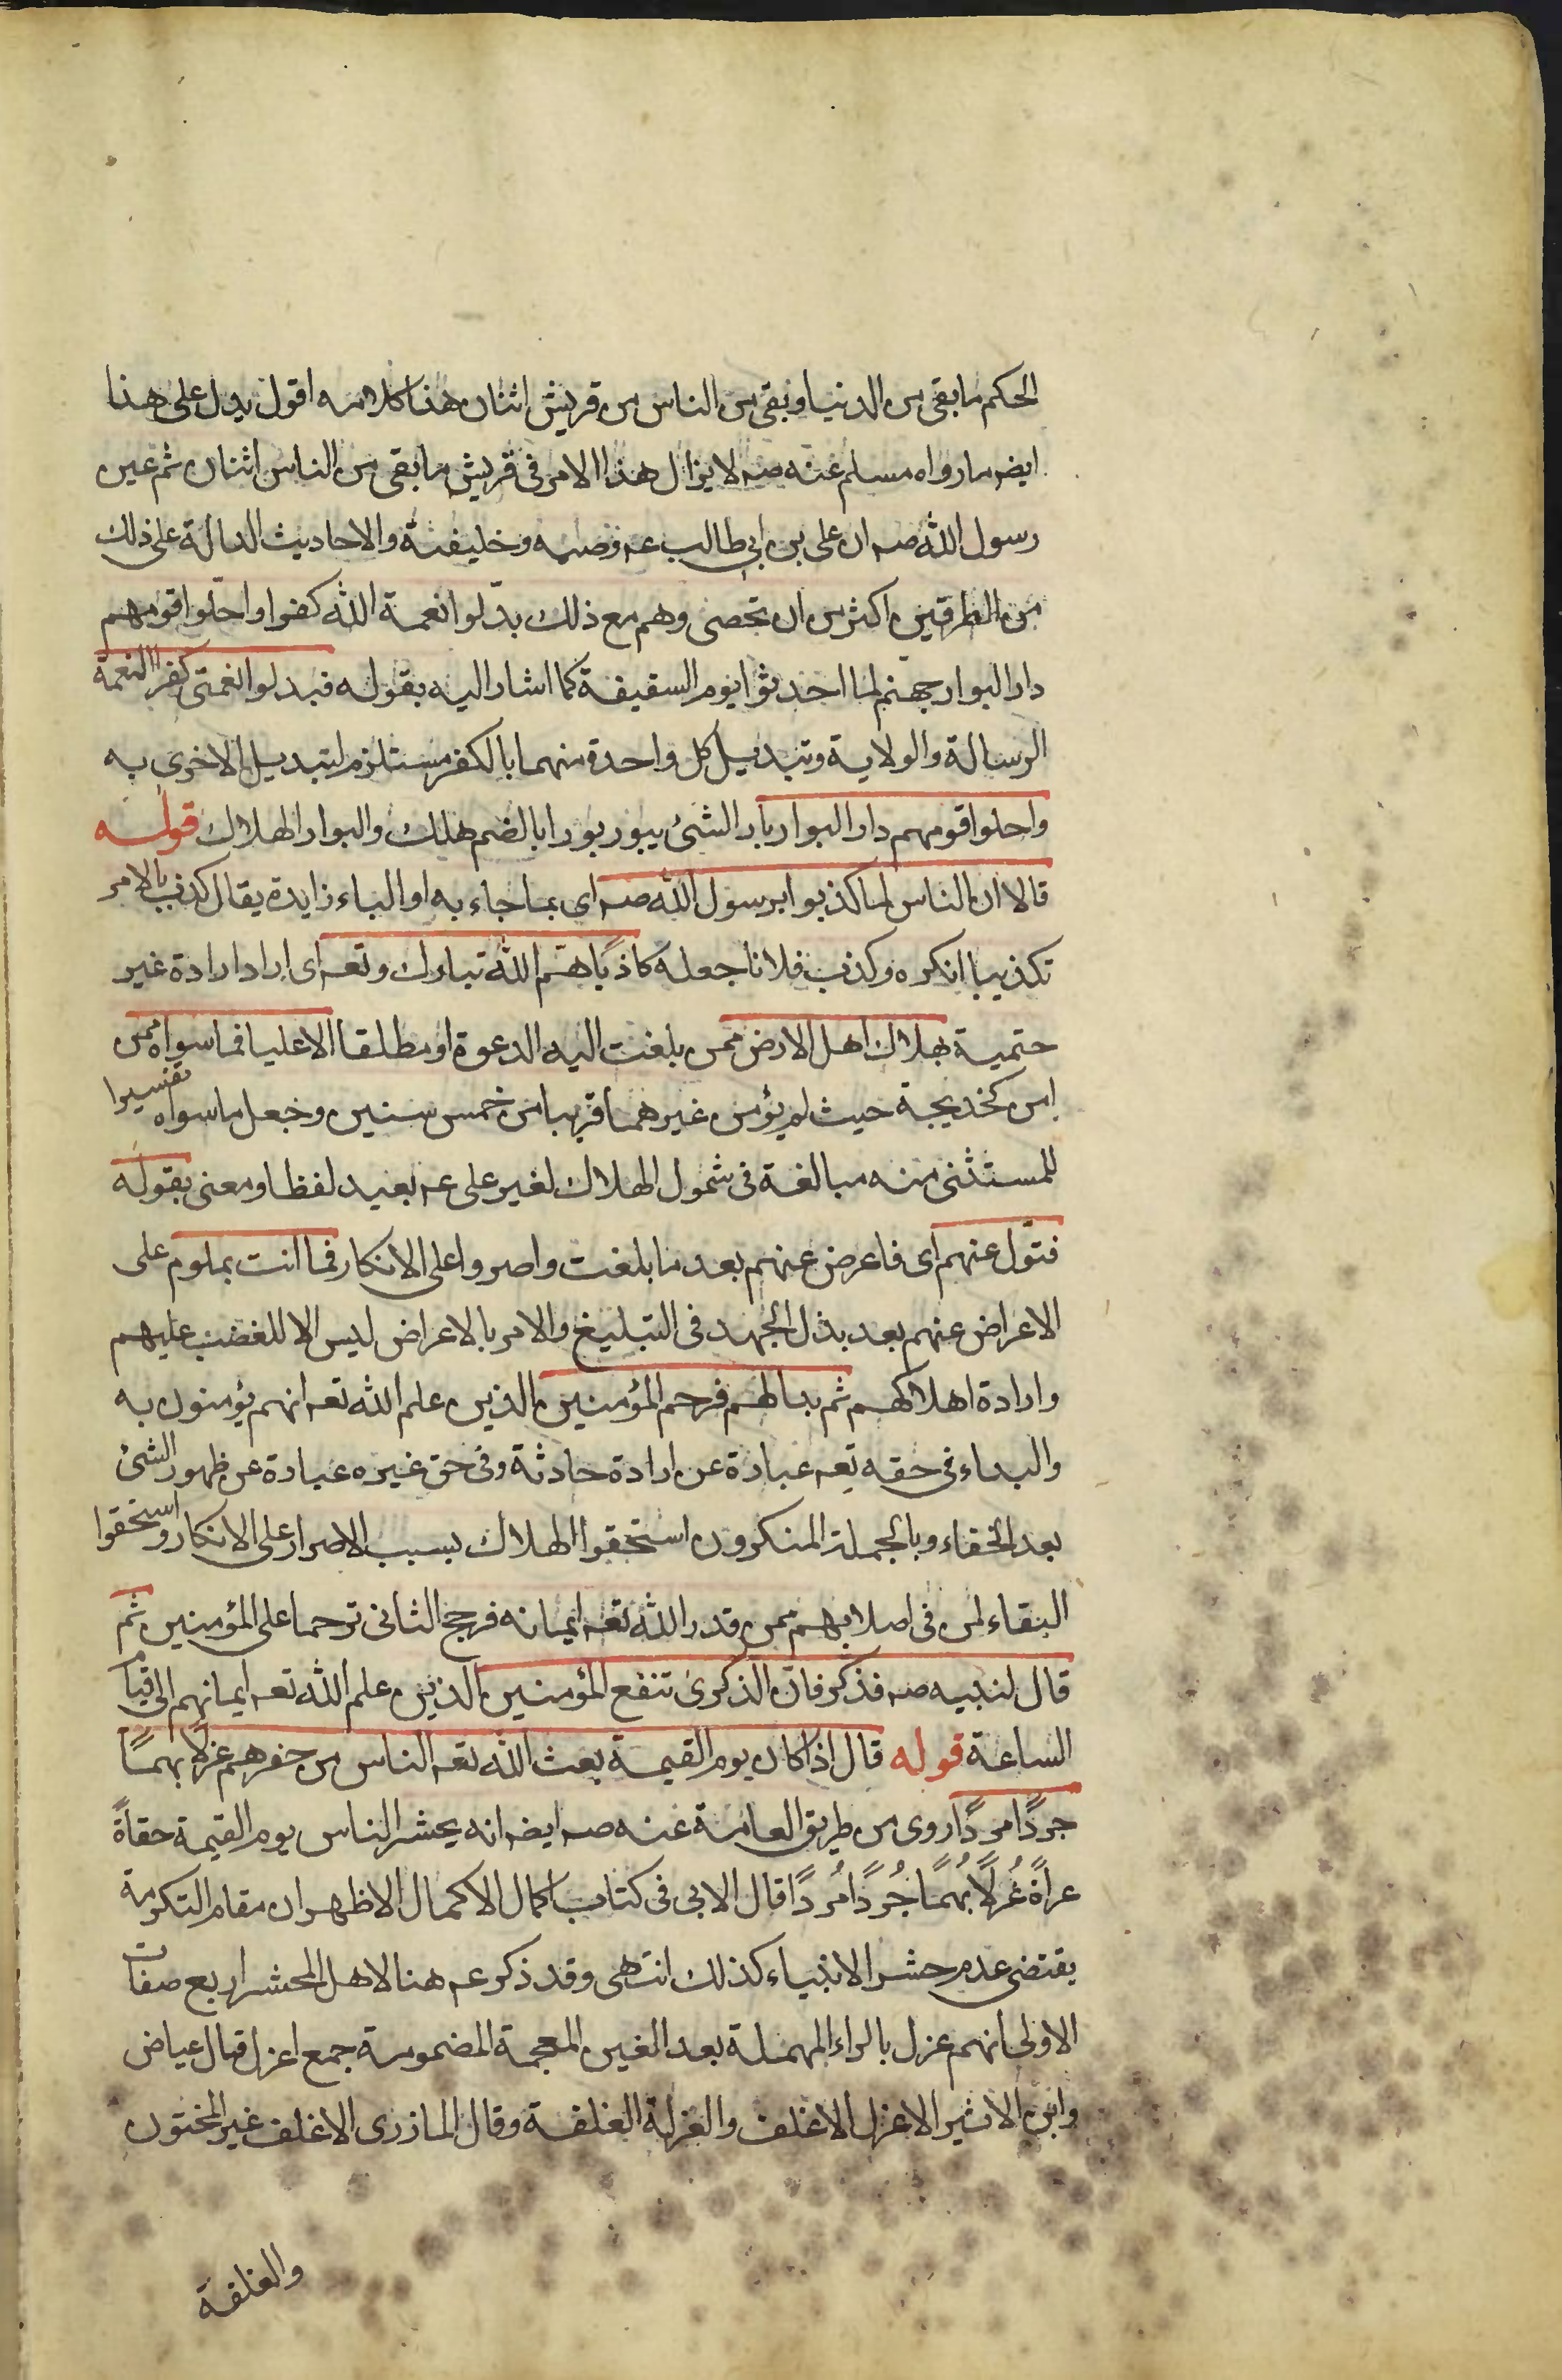 الحكم ما بقى من الدنيا وبقى من الناس من قريش اثنان هذا كلامه اقول يدل على هذا
ايضه ما رواه مسلم عنه صه لا يزال هذا الامر فى قريش ما بقى من الناس اثنان ثم عين
رسول الله صه ان على بن ابى طالب عه وصيه وخليفته والاحاديث الدالة على ذلك
من الطرفين اكثر من ان تحصى وهم مع ذلك بدّلوا نعمة الله كفرا واحلّوا قومهم
دار البوار جهنم لما احدثوا يوم السقيفة كما اشار اليه بقوله فبدلوا نعمتى كفرا النعمة
الرسالة والولاية وتبديل كل واحدة منهما بالكفر مستلزم لتبديل الاخرى به
واحلوا قومهم دار البوار بار الشئ يبور بورا بالضم هلك والبوار الهلاك قوله
قالا ان الناس لما كذبوا برسول الله صه اى بما جاء به او الباء زايدة يقال كذب بالامر
تكذيبا انكره وكذب فلانا جعله كاذبًا همّ الله تبارك وتعه اى اراد ارادة غير
حتمية بهلاك اهل الارض ممن بلغت اليه الدعوة او مطلقا الا عليا فما سواه ممن
امن كخديجة حيث لم يؤمن غيرهما قريبا من خمس سنين وجعل ما سواه تفسيرا
للمستثنى منه مبالغة فى شمول الهلاك لغير على عه بعيد لفظا ومعنى بقوله
فتولّ عنهم اى فاعرض عنهم بعد ما بلغت واصروا على الانكار فما انت بملوم على
الاعراض عنهم بعد بذل الجهد فى التبليغ والامر بالاعراض ليس الا للغضب عليهم
وارادة اهلاكهم ثم بدا لهم فرحم المؤمنين الذين علم الله تعه انهم يؤمنون به
والبداء فى حقه تعه عبارة عن ارادة حادثة وفى حق غيره عبارة عن ظهور الشئ
بعد الخفاء وبالجملة المنكرون استحقوا الهلاك بسبب الاصرار على الانكار واستحقوا
البقاء لمن فى اصلابهم ممن قدر الله تعه ايمانه فرجح الثانى ترحما على المؤمنين ثم
قال لنبيه صه فذكر فانّ الذكرى تنفع المؤمنين الذين علم الله تعه ايمانهم الى قيام
الساعة قوله قال اذا كان يوم القيمة بعث الله تعه الناس من حفرهم عزلا بهمًا
جردًا مردًا روى من طريق العامة عنه صه ايضه انه يحشر الناس يوم القيمة حفاةً
عراةً غُرلاً بُهمًا جُردًا مُردًا قال الابى فى كتاب اكمال الاكمال الاظهر ان مقام التكرمة
يقتضى عدم حشر الانبياء كذلك انتهى وقد ذكر عه هنا لاهل المحشر اربع صفات
الاولى انهم غرل بالراء المهملة بعد الغين المعجمة المضمومة جمع اغرل قال عياض
وابن الاثير الاغرل الاغلف والغرلة الغلفة وقال المازرى الاغلف غير المختون
والغلفة